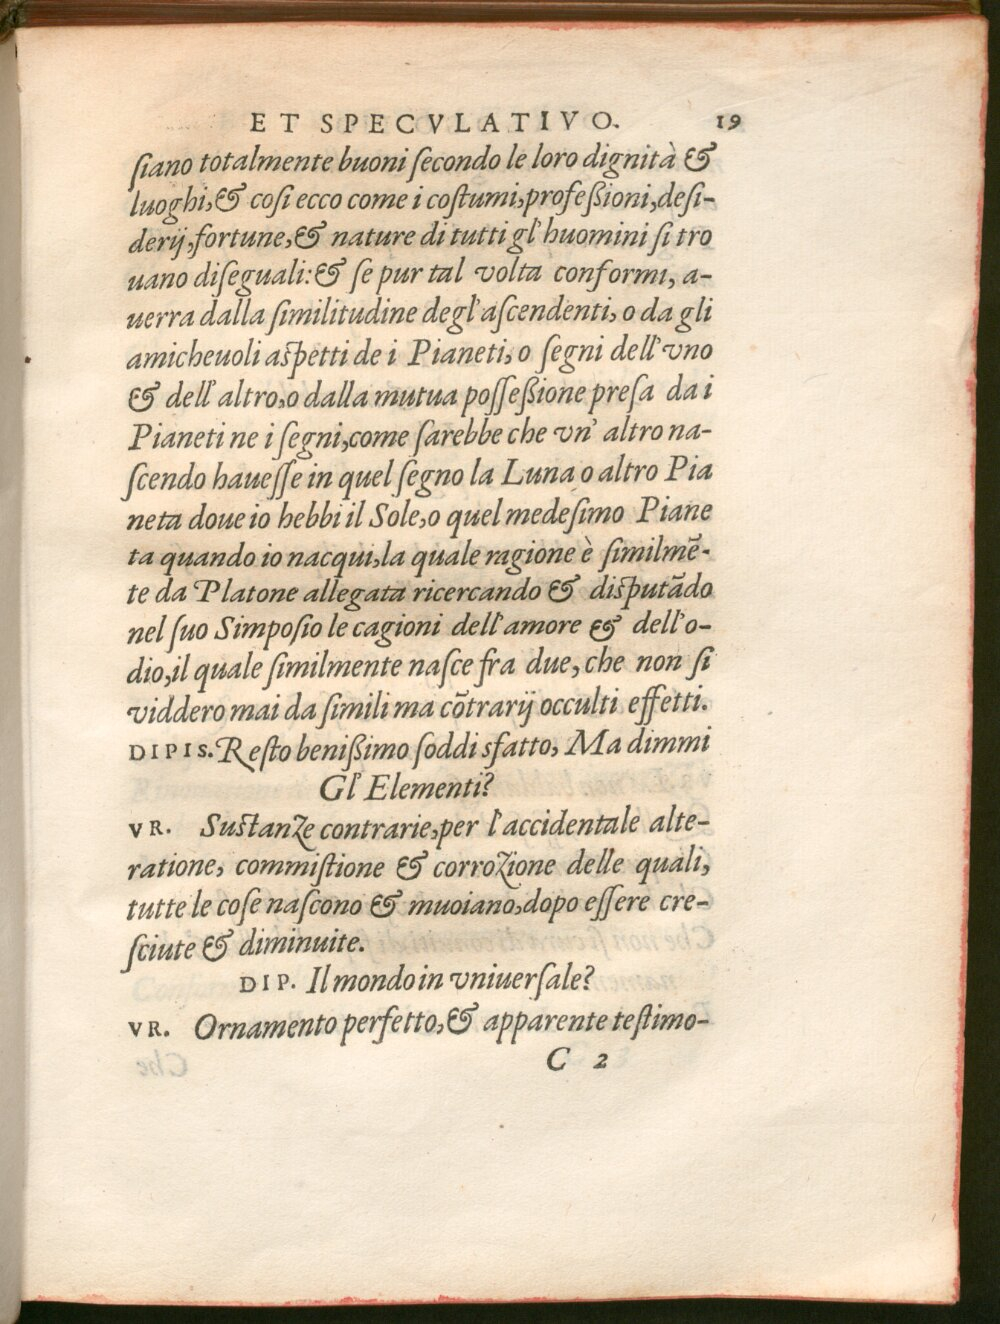 ET SPECVLATIVO. 19
ſiano totalmente buoni ſecondo le loro dignità &
luoghi,& coſi ecco come i coſtumi,profeßioni,deſi-
derij,fortune,& nature di tutti gl'huomini ſi tro
uano diſeguali:& ſe pur tal volta conformi, a-
uerra dalla ſimilitudine degl'aſcendenti, o da gli
amicheuoli aſpetti de i Pianeti, o ſegni dell'vno
& dell'altro,o dalla mutua poſſeßione preſa da i
Pianeti ne i ſegni,come ſarebbe che vn' altro na-
ſcendo haueſſe in quel ſegno la Luna o altro Pia
neta doue io hebbi il Sole,o quel medeſimo Piane
ta quando io nacqui,la quale ragione è ſimilmē-
te da Platone allegata ricercando & diſputādo
nel ſuo Simpoſio le cagioni dell'amore & dell'o-
dio,il quale ſimilmente naſce fra due, che non ſi
viddero mai da ſimili ma cōtrarij occulti effetti.
DIPIS. Reſto benißimo ſoddiſfatto, Ma dimmi
Gl'Elementi?
VR. Suſtanze contrarie,per l'accidentale alte-
ratione, commiſtione & corrozione delle quali,
tutte le coſe naſcono & muoiano,dopo eſſere cre-
ſciute & diminuite.
DIP. Il mondo in vniuerſale?
VR. Ornamento perfetto,& apparente teſtimo-
C 2